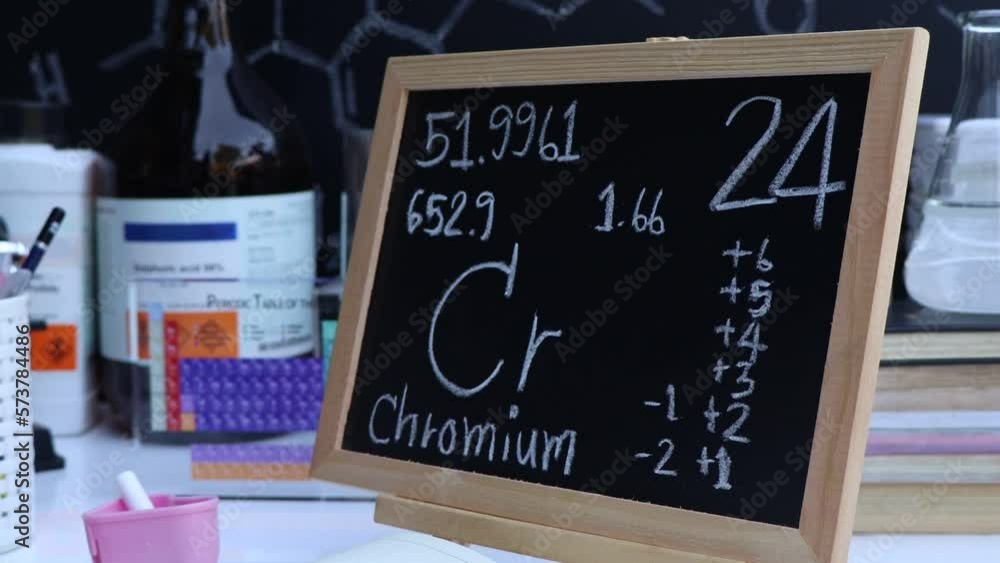 51.9961 24
652.9 1.66
Cr
Chromium
+6
+5
+4
+3
-1 +2
-2 +1
Sulphuric acid 98%
PERIODIC TABLE OF THE
Adobe Stock | #573784486
Adobe Stock